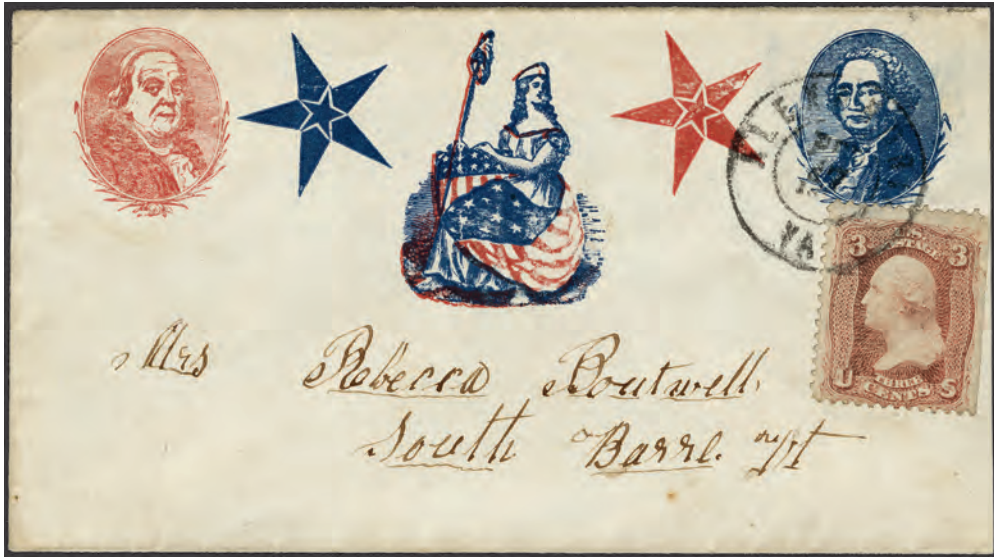 VA
3 3
U THREE S
CENTS
Mrs Rebecca Boutwell
South Barre. Vt